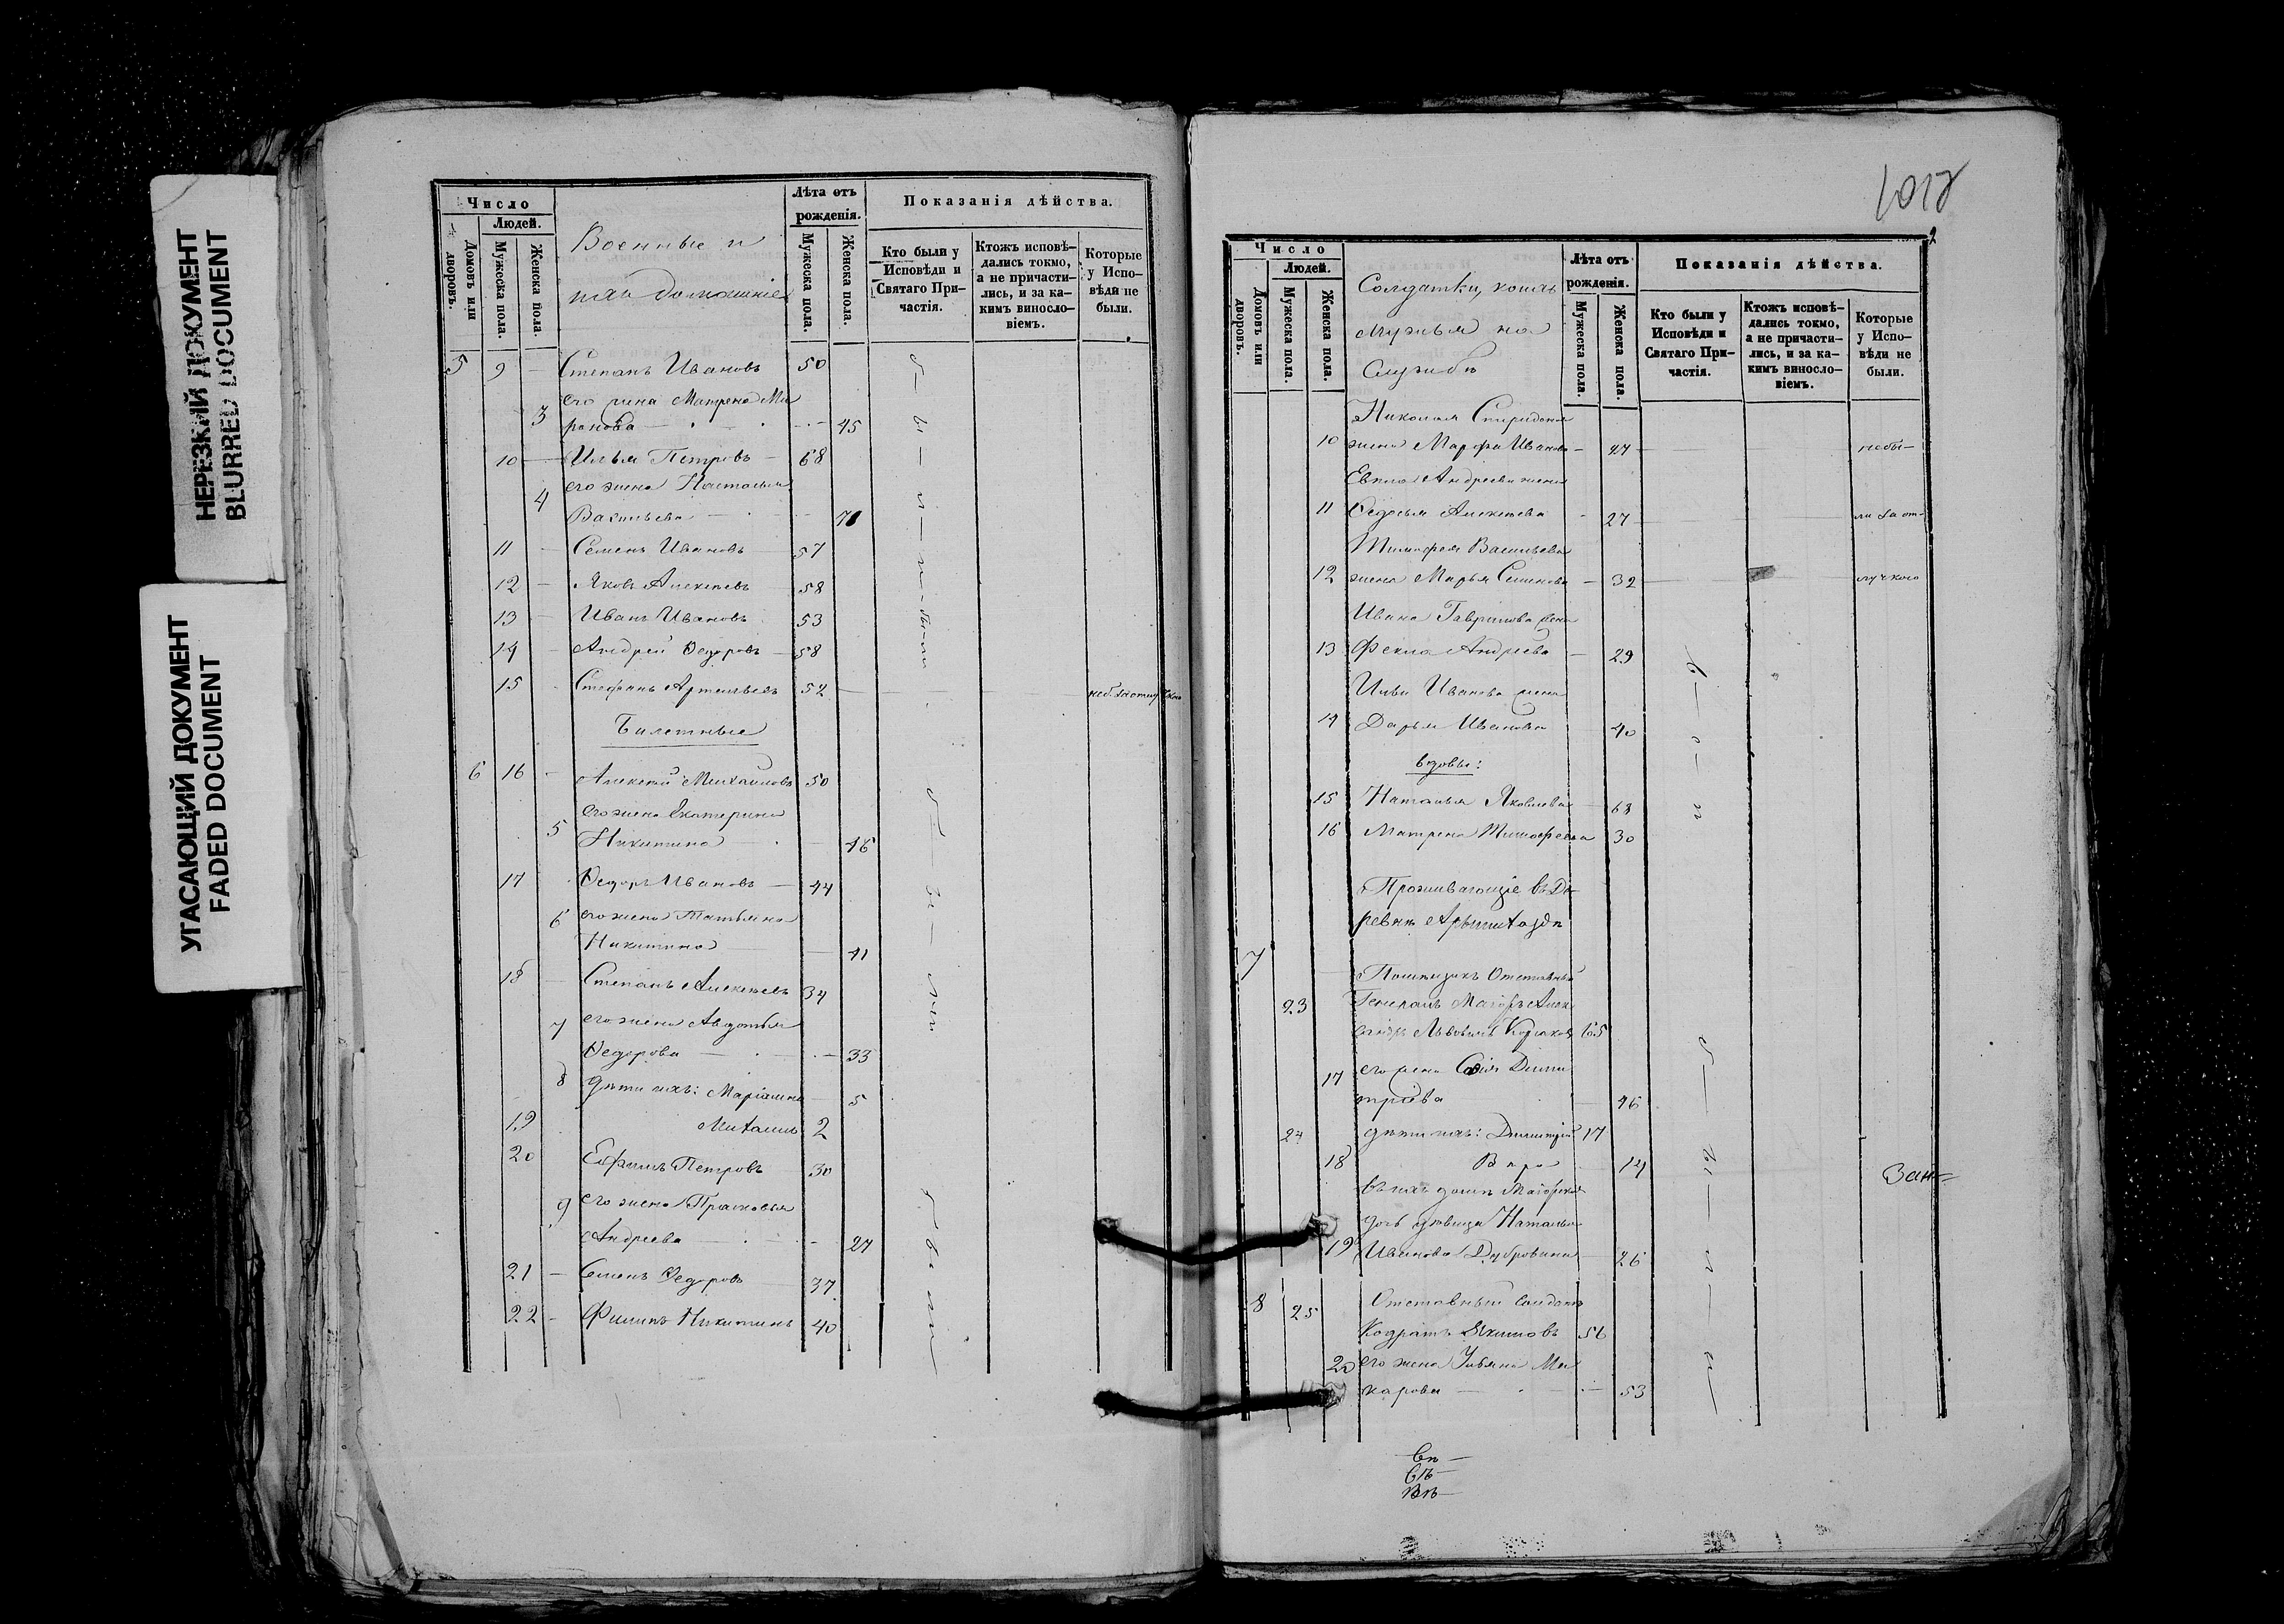 НЕРЕЗКИЙ ДОКУМЕНТ
BLURRED DOCUMENT
УГАСАЮЩИЙ ДОКУМЕНТ
FADED DOCUMENT
Число
Людей.
Домовъ или дворовъ.
Мужеска пола.
Женска пола.
Военные и
ихъ домашніе
Лѣта отъ
рожденія.
Мужеска пола.
Женска пола.
Показанія дѣйства.
Кто были у
Исповѣди и
Святаго При-
частія.
Ктожъ исповѣ-
дались токмо,
а не причасти-
лись, и за ка-
кимъ винosло-
віемъ.
Которые
у Испо-
вѣди не
были.
5 9 - Степанъ Ивановъ 50
его жена Матрена Ми
3 ронова 45
10 Илья Петровъ 68
его жена Наталья
4 Васильева
11 Семенъ Ивановъ 57
12 - Яковъ Алексѣевъ 58
13 - Иванъ Ивановъ 53
14 - Андрей Ѳедоровъ 58
15 - Стефанъ Артемьевъ 52
Билетные
6 16 - Алексѣй Михайловъ 50
его жена Екатерина
5 Никитина 46
17 Ѳедоръ Ивановъ 44
6 его жена Татьяна
Никитина 41
18 - Степанъ Алексѣевъ 34
7 его жена Авдотья
Ѳедорова 33
8 дѣти ихъ: Маріамна 5
19 Михаилъ 2
20 Ефимъ Петровъ 30
9 его жена Прасковья
Андреева 27
21 - Семенъ Ѳедоровъ 37
22 - Филипъ Никитинъ 40
1012
Число
Людей.
Домовъ или дворовъ.
Мужеска пола.
Женска пола.
Солдатки, коихъ
мужья на
службѣ
Лѣта отъ
рожденія.
Мужеска пола.
Женска пола.
Показанія дѣйства.
Кто были у
Исповѣди и
Святаго При-
частія.
Ктожъ исповѣ-
дались токмо,
а не причасти-
лись, и за ка-
кимъ винosло-
віемъ.
Которые
у Испо-
вѣди не
были.
Николая Спиридонова
10 жена Марфа Иванова - 27 не бы-
Андреева жена
11 Ѳедосья Алексѣева - 27 ли за от-
Тимофея Васильева
12 жена Марья Семенова - 32 лучкою
Ивана Гаврилова жена
13 Фекла Андреева - 29
Ильи Иванова жена
14 Дарья Иванова 40
вдовы:
15 Наталья Яковлева 63
16 Матрена Тимофеева 30
Проживающіе въ Де-
ревнѣ
7 Помѣщикъ Отставный
23 Генералъ Маіоръ Алек-
сандръ Львовичъ 65
17 его жена Софія Дими
тріева 46
24 дѣти ихъ: Димитрій 17
18 Вѣра 14
Зан-
въ ихъ домѣ Маіорская
дочь дѣвица Наталья
19 Иванова Дубровина 26
8 25 Отставный Солдатъ
Кодратъ Якимовъ 56
20 его жена Ульяна Ма
карова 53